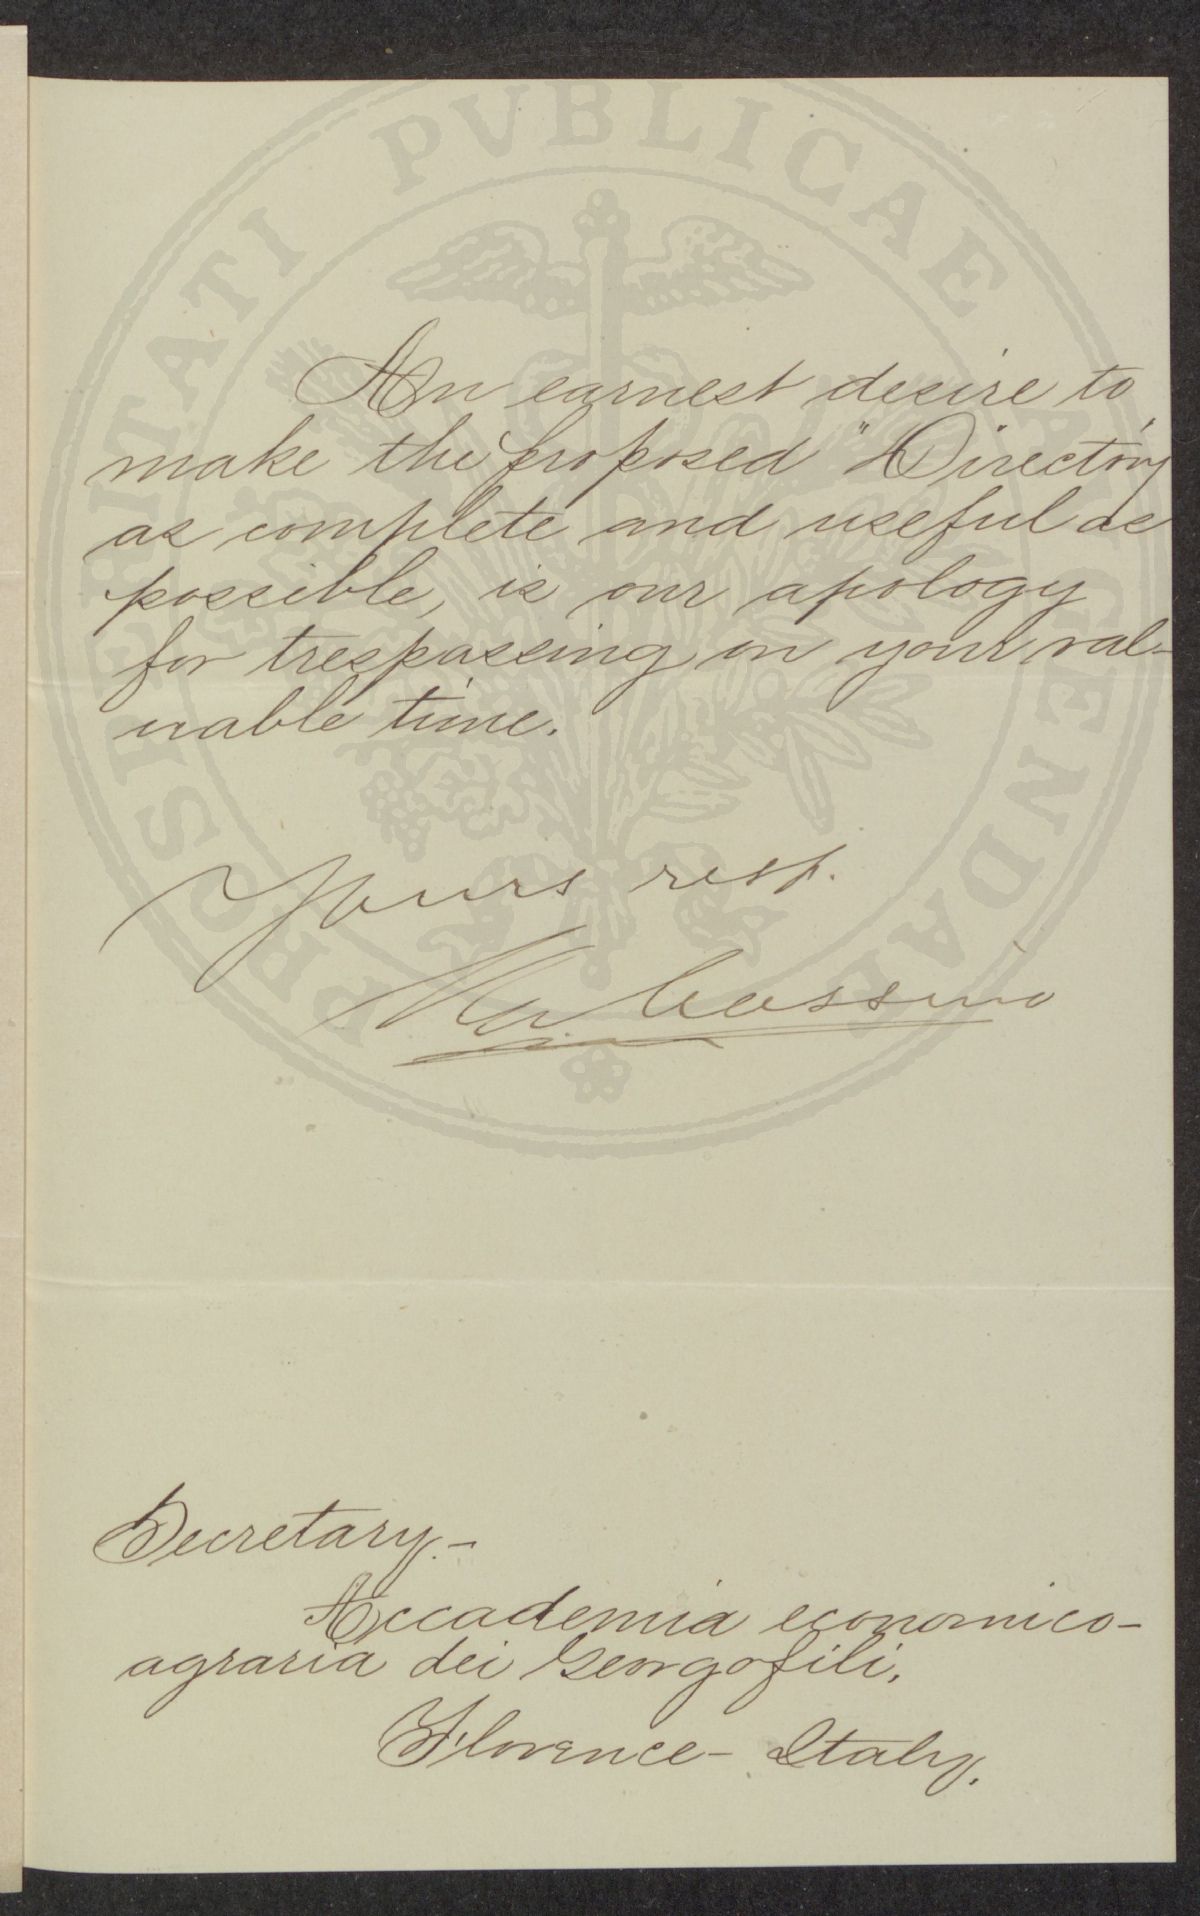 An earnest desire to
make the proposed "Directory"
as complete and useful as
possible, is our apology
for trespassing on your val-
uable time.
Yours resp.
Cassino
Secretary.-
Accademia economico-
agraria dei Georgofili.
Florence - Italy.
PROSPERITATI PVBLICAE AVGENDAE